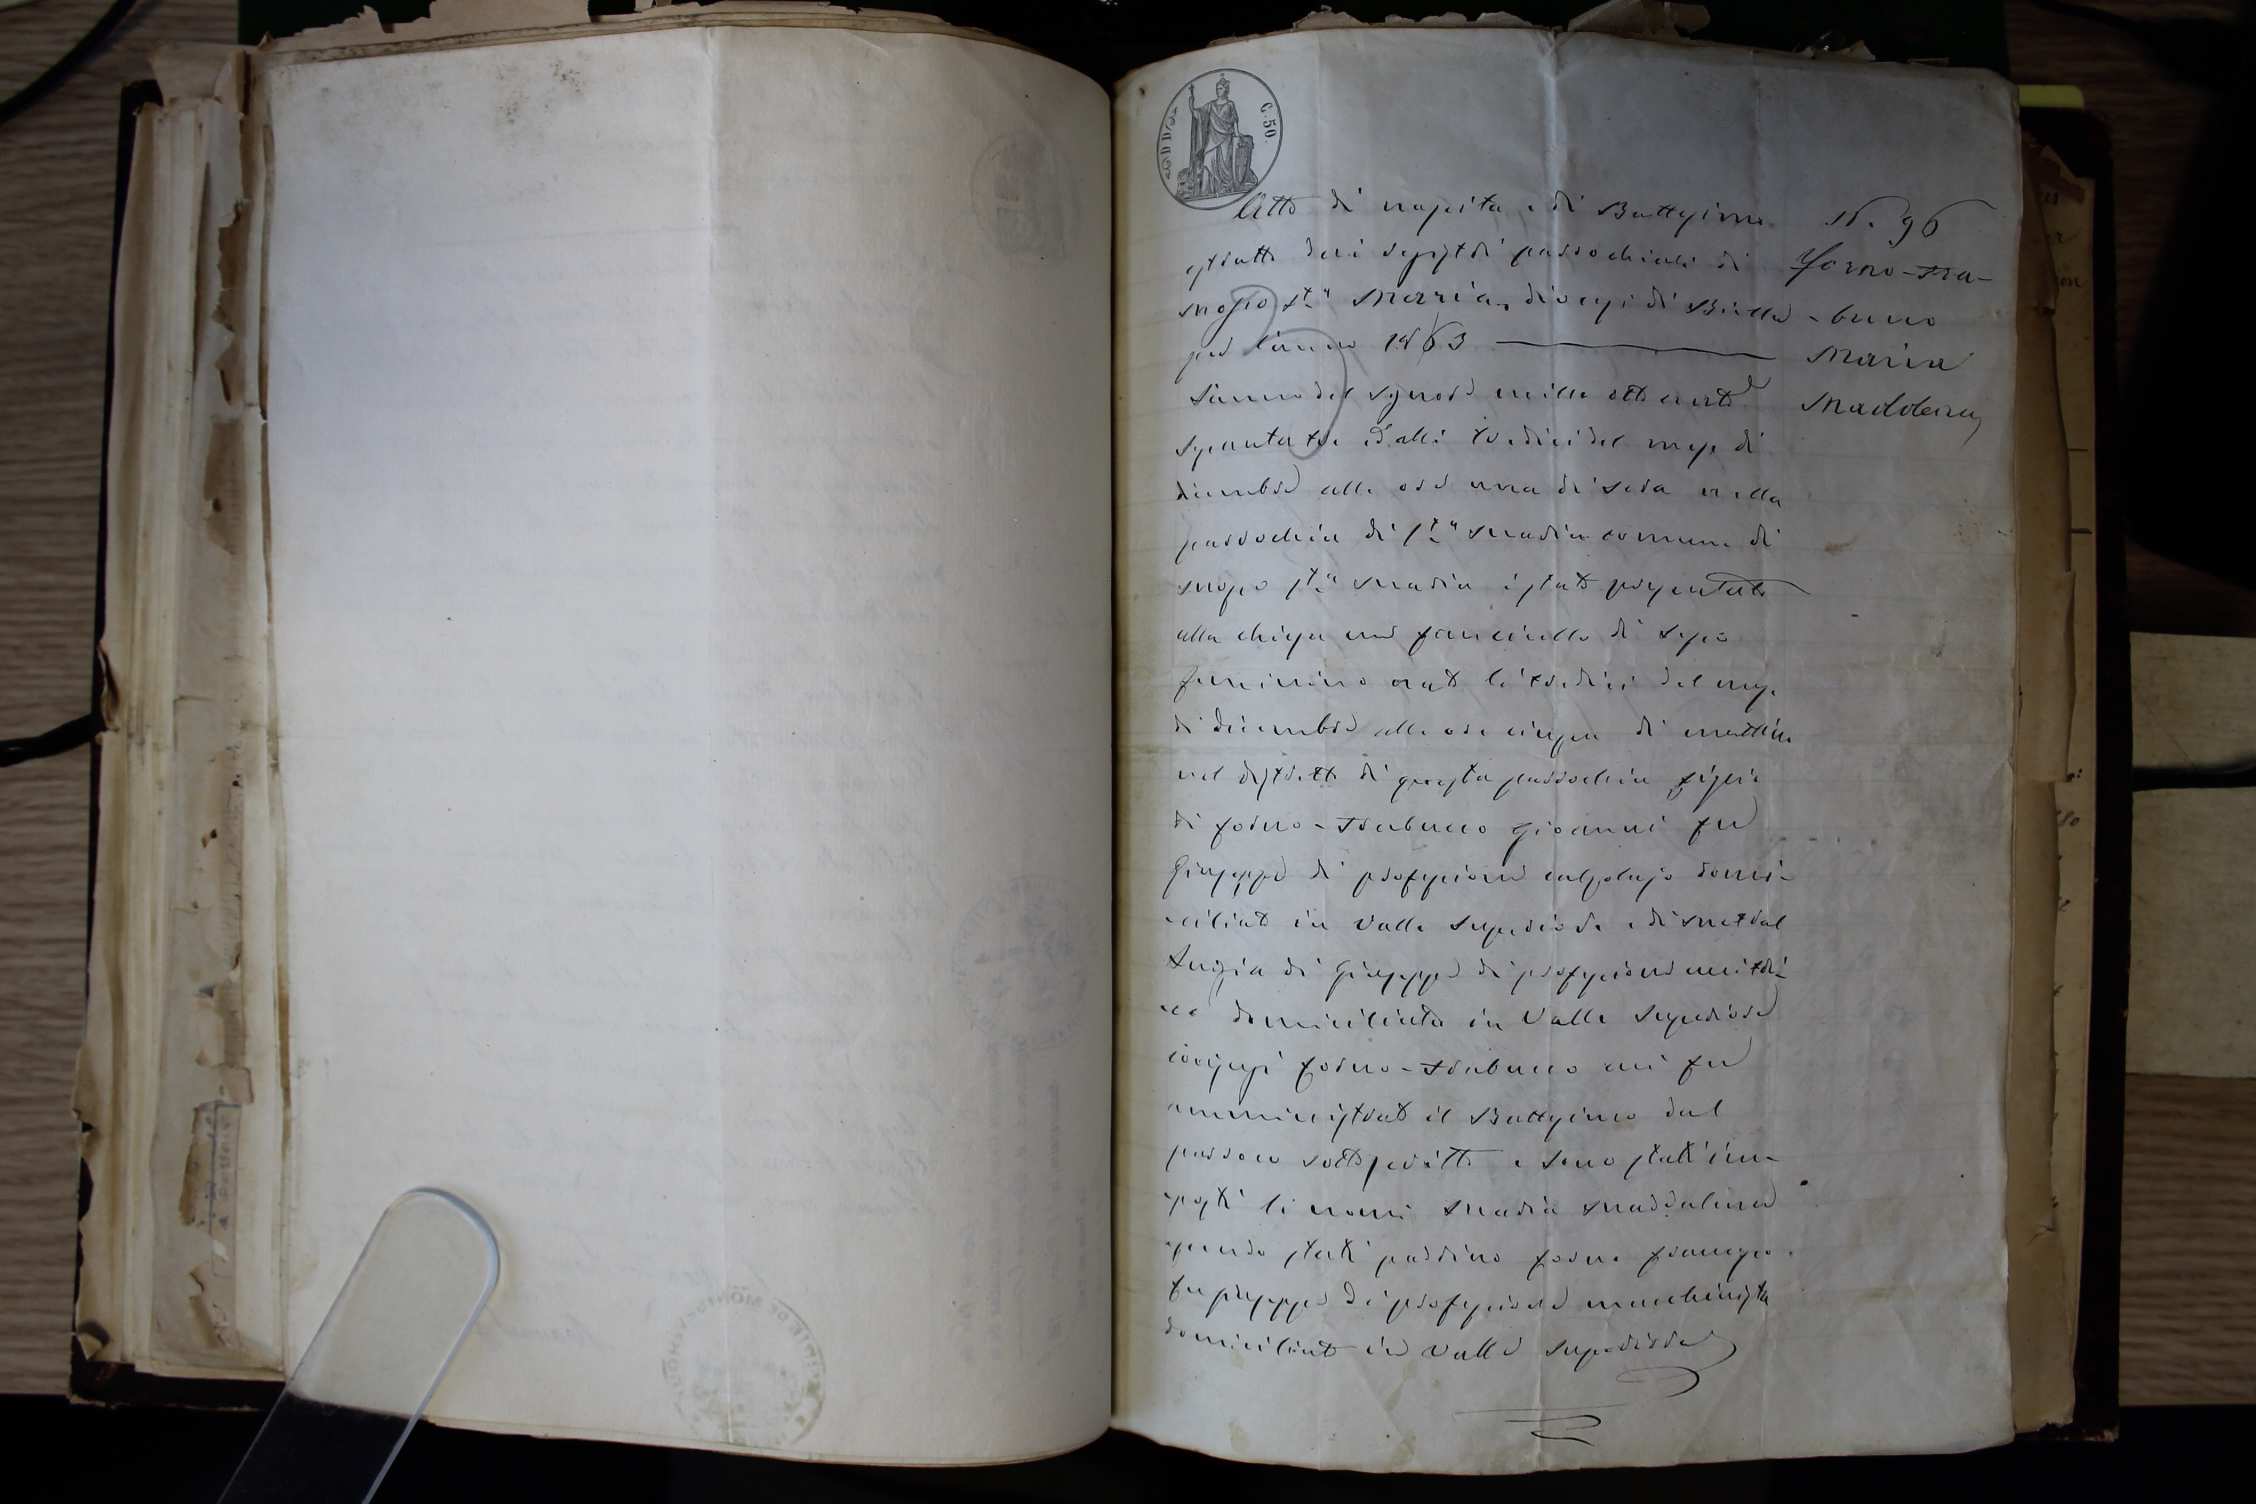 C. 50.
Atto di nascita e di Battesimo
estratto dai registri parrochiali di
Mosso Sta Maria, diocesi di Biella
per l'anno 1863
L'anno del Signore mille otto cento
sessanta tre ed alli tredici del mese di
dicembre alle ore una di sera nella
parrochia di Sta Maria comune di
Mosso Sta Maria è stato presentato
alla chiesa un fanciullo di sesso
femminino nato li tredici del mese
di dicembre alle ore cinque di mattina
nel distretto di questa parrochia figlia
di Forno-Trabucco Gioanni fu
Giuseppe di professione calzolajo domi-
ciliato in Valle Superiore e di Mettral
Luigia di Giuseppe di professione
domiciliata in Valle Superiore
coniugi Forno-Trabucco cui fu
amministrato il Battesimo dal
parroco sottoscritto e sono stati im-
posti li nomi Maria Maddalena
essendo stati padrino Forno Francesco
fu Giuseppe di professione macchinista
domiciliato in Valle Superiore
N. 96
Forno-Tra-
-bucco
Maria
Maddalena